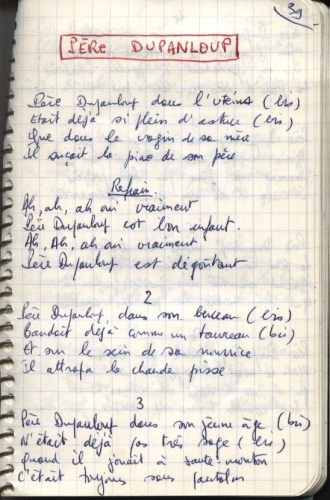 39
PÈRE DUPANLOUP
Père Dupanloup dans l'utérus (bis)
Etait déjà si plein d'astuce (bis)
Que dans le vagin de sa mère
Il suçait la pine de son père
Refrain.
Ah, ah, ah oui vraiment
Père Dupanloup est bon enfant.
Ah, Ah, ah oui vraiment
Père Dupanloup est dégoutant
2
Père Dupanloup, dans son berceau (bis)
Bandait déjà comme un taureau (bis)
Et sur le sein de sa nourrice
il attrapa la chaude pisse
3
Père Dupanloup dans son jeune âge (bis)
N'était déjà pas très sage (bis)
Quand il jouait à saute-mouton
C'était toujours sans pantalon